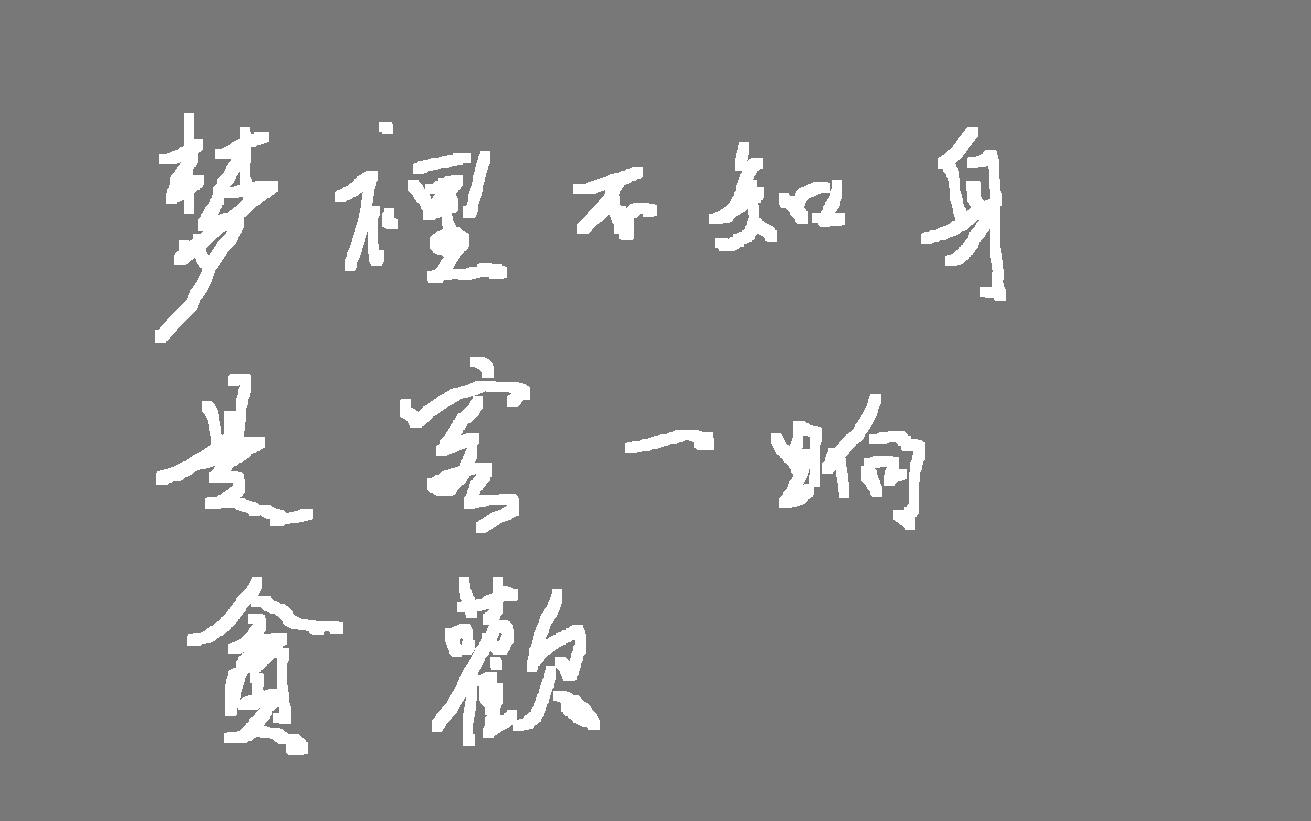 梦裡不知身
是客一晌
貪歡